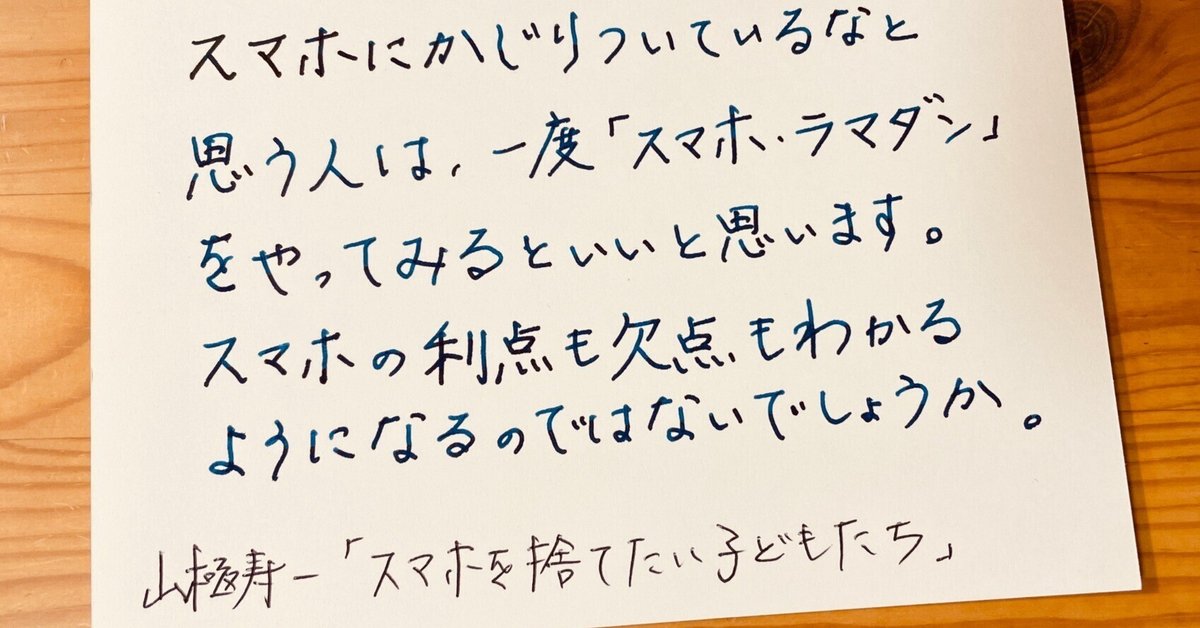 スマホにかじりついているなと
思う人は、一度「スマホ・ラマダン」
をやってみるといいと思います。
スマホの利点も欠点もわかる
ようになるのではないでしょうか。
山極寿一「スマホを捨てたい子どもたち」